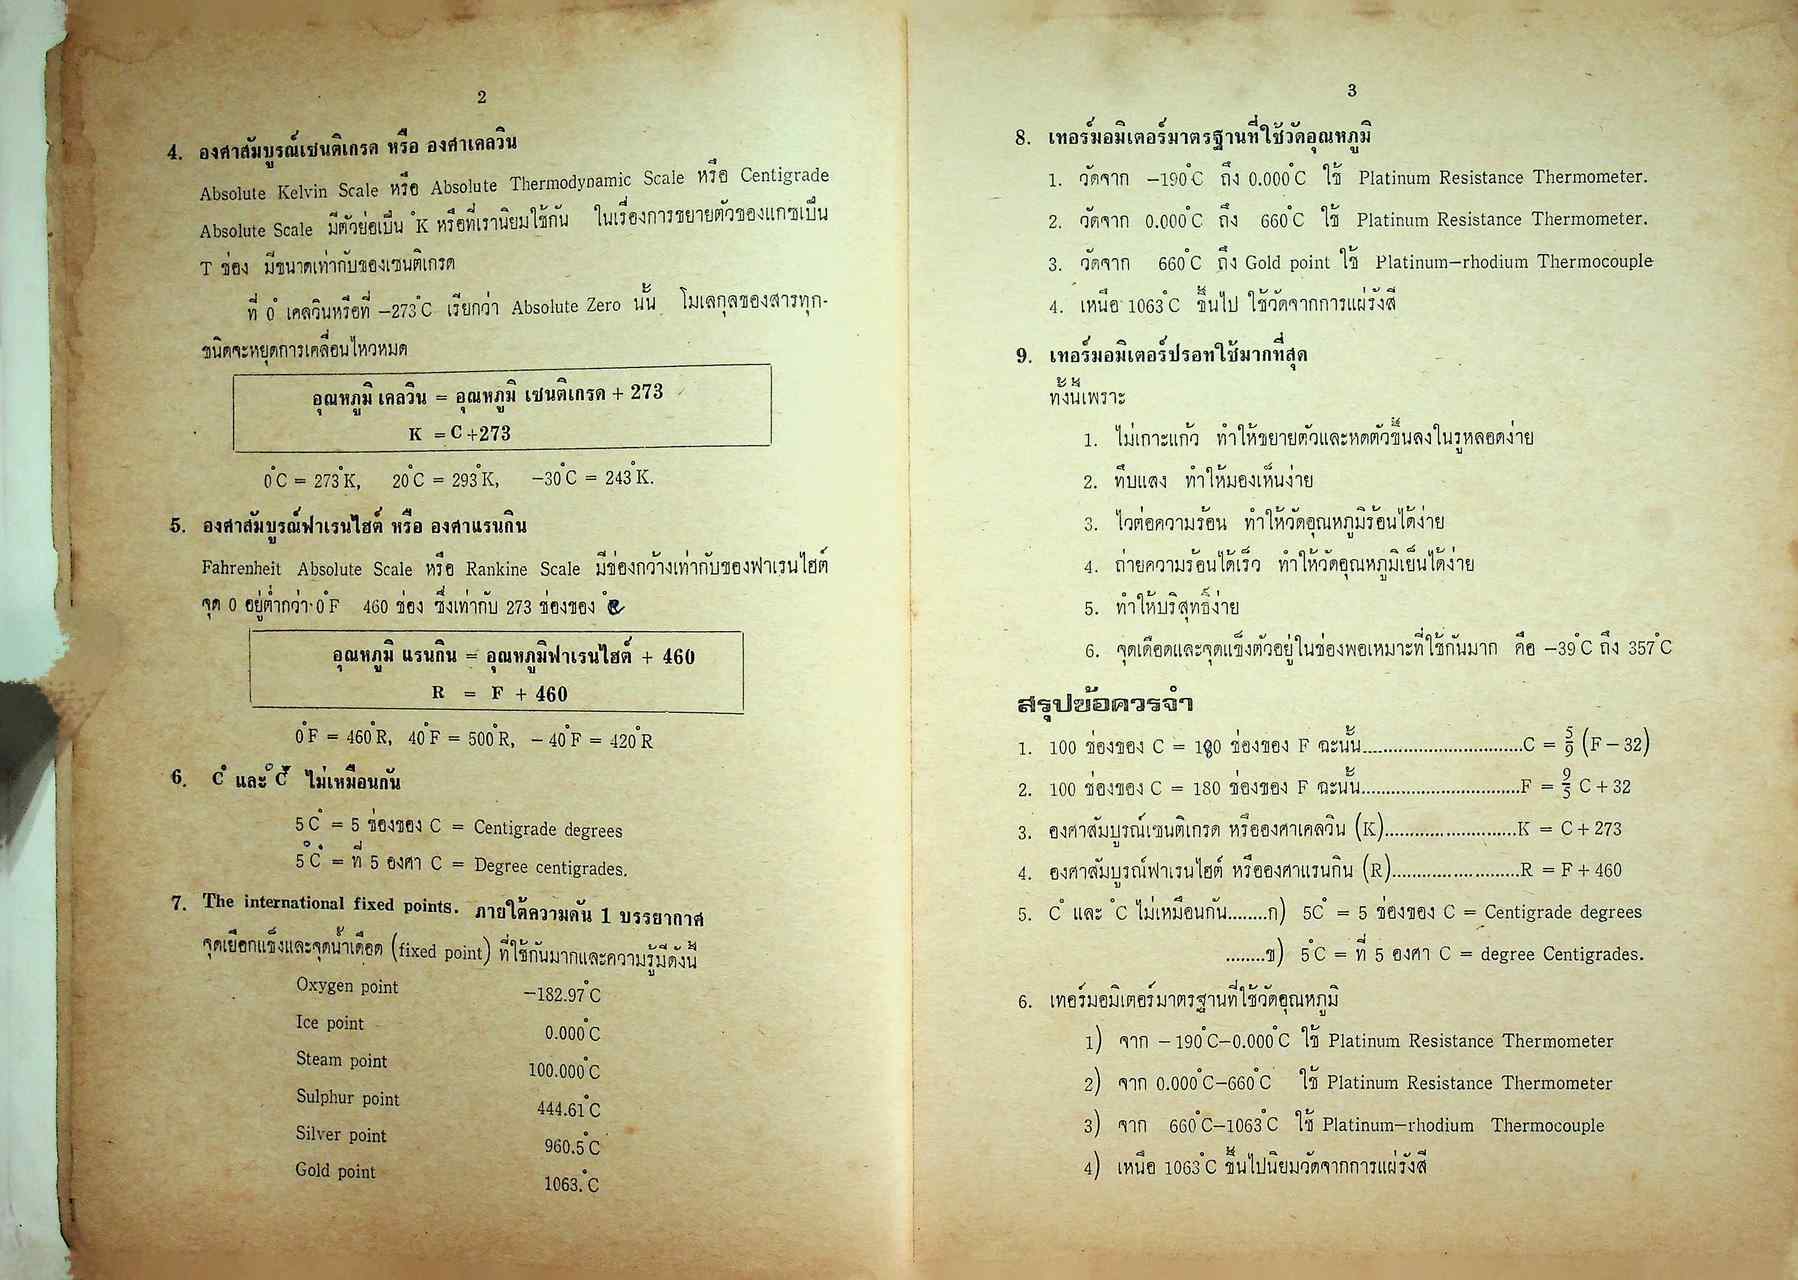 2
4. องศาสัมบูรณ์เซนติเกรด หรือ องศาเคลวิน
Absolute Kelvin Scale หรือ Absolute Thermodynamic Scale หรือ Centigrade
Absolute Scale มีตัวย่อเป็น °K หรือที่เรานิยมใช้กัน ในเรื่องการขยายตัวของแกซเป็น
T ช่อง มีขนาดเท่ากับของเซนติเกรด
ที่ 0° เคลวินหรือที่ –273°C เรียกว่า Absolute Zero นั้น โมเลกุลของสารทุก-
ชนิดจะหยุดการเคลื่อนไหวหมด
อุณหภูมิ เคลวิน = อุณหภูมิ เซนติเกรด + 273
K = C+273
0°C = 273°K, 20°C = 293°K, –30°C = 243°K.
5. องศาสัมบูรณ์ฟาเรนไฮต์ หรือ องศาแรนกิน
Fahrenheit Absolute Scale หรือ Rankine Scale มีช่องกว้างเท่ากับของฟาเรนไฮต์
จุด 0 อยู่ต่ำกว่า 0°F 460 ช่อง ซึ่งเท่ากับ 273 ช่องของ
อุณหภูมิ แรนกิน = อุณหภูมิฟาเรนไฮต์ + 460
R = F + 460
0°F = 460°R, 40°F = 500°R, – 40°F = 420°R
6. C° และ °C ไม่เหมือนกัน
5C° = 5 ช่องของ C = Centigrade degrees
5°C = ที่ 5 องศา C = Degree centigrades.
7. The international fixed points. ภายใต้ความดัน 1 บรรยากาศ
จุดเยือกแข็งและจุดน้ำเดือด (fixed point) ที่ใช้กันมากและความรู้มีดังนี้
Oxygen point –182.97°C
Ice point 0.000°C
Steam point 100.000°C
Sulphur point 444.61°C
Silver point 960.5°C
Gold point 1063.°C
3
8. เทอร์มอมิเตอร์มาตรฐานที่ใช้วัดอุณหภูมิ
1. วัดจาก –190°C ถึง 0.000°C ใช้ Platinum Resistance Thermometer.
2. วัดจาก 0.000°C ถึง 660°C ใช้ Platinum Resistance Thermometer.
3. วัดจาก 660°C ถึง Gold point ใช้ Platinum–rhodium Thermocouple
4. เหนือ 1063°C ขึ้นไป ใช้วัดจากการแผ่รังสี
9. เทอร์มอมิเตอร์ปรอทใช้มากที่สุด
ทั้งนี้เพราะ
1. ไม่เกาะแก้ว ทำให้ขยายตัวและหดตัวขึ้นลงในรูหลอดง่าย
2. ทึบแสง ทำให้มองเห็นง่าย
3. ไวต่อความร้อน ทำให้วัดอุณหภูมิร้อนได้ง่าย
4. ถ่ายความร้อนได้เร็ว ทำให้วัดอุณหภูมิเย็นได้ง่าย
5. ทำให้บริสุทธิ์ง่าย
6. จุดเดือดและจุดแข็งตัวอยู่ในช่องพอเหมาะที่ใช้กันมาก คือ –39°C ถึง 357°C
สรุปข้อควรจำ
1. 100 ช่องของ C = 180 ช่องของ F ฉะนั้น..............................C = 5/9 (F – 32)
2. 100 ช่องของ C = 180 ช่องของ F ฉะนั้น..............................F = 9/5 C + 32
3. องศาสัมบูรณ์เซนติเกรด หรือองศาเคลวิน (K)........................K = C + 273
4. องศาสัมบูรณ์ฟาเรนไฮต์ หรือองศาแรนกิน (R)........................R = F + 460
5. C° และ °C ไม่เหมือนกัน........ก) 5C° = 5 ช่องของ C = Centigrade degrees
........ข) 5°C = ที่ 5 องศา C = degree Centigrades.
6. เทอร์มอมิเตอร์มาตรฐานที่ใช้วัดอุณหภูมิ
1) จาก – 190°C–0.000°C ใช้ Platinum Resistance Thermometer
2) จาก 0.000°C–660°C ใช้ Platinum Resistance Thermometer
3) จาก 660°C–1063°C ใช้ Platinum–rhodium Thermocouple
4) เหนือ 1063°C ขึ้นไปนิยมวัดจากการแผ่รังสี